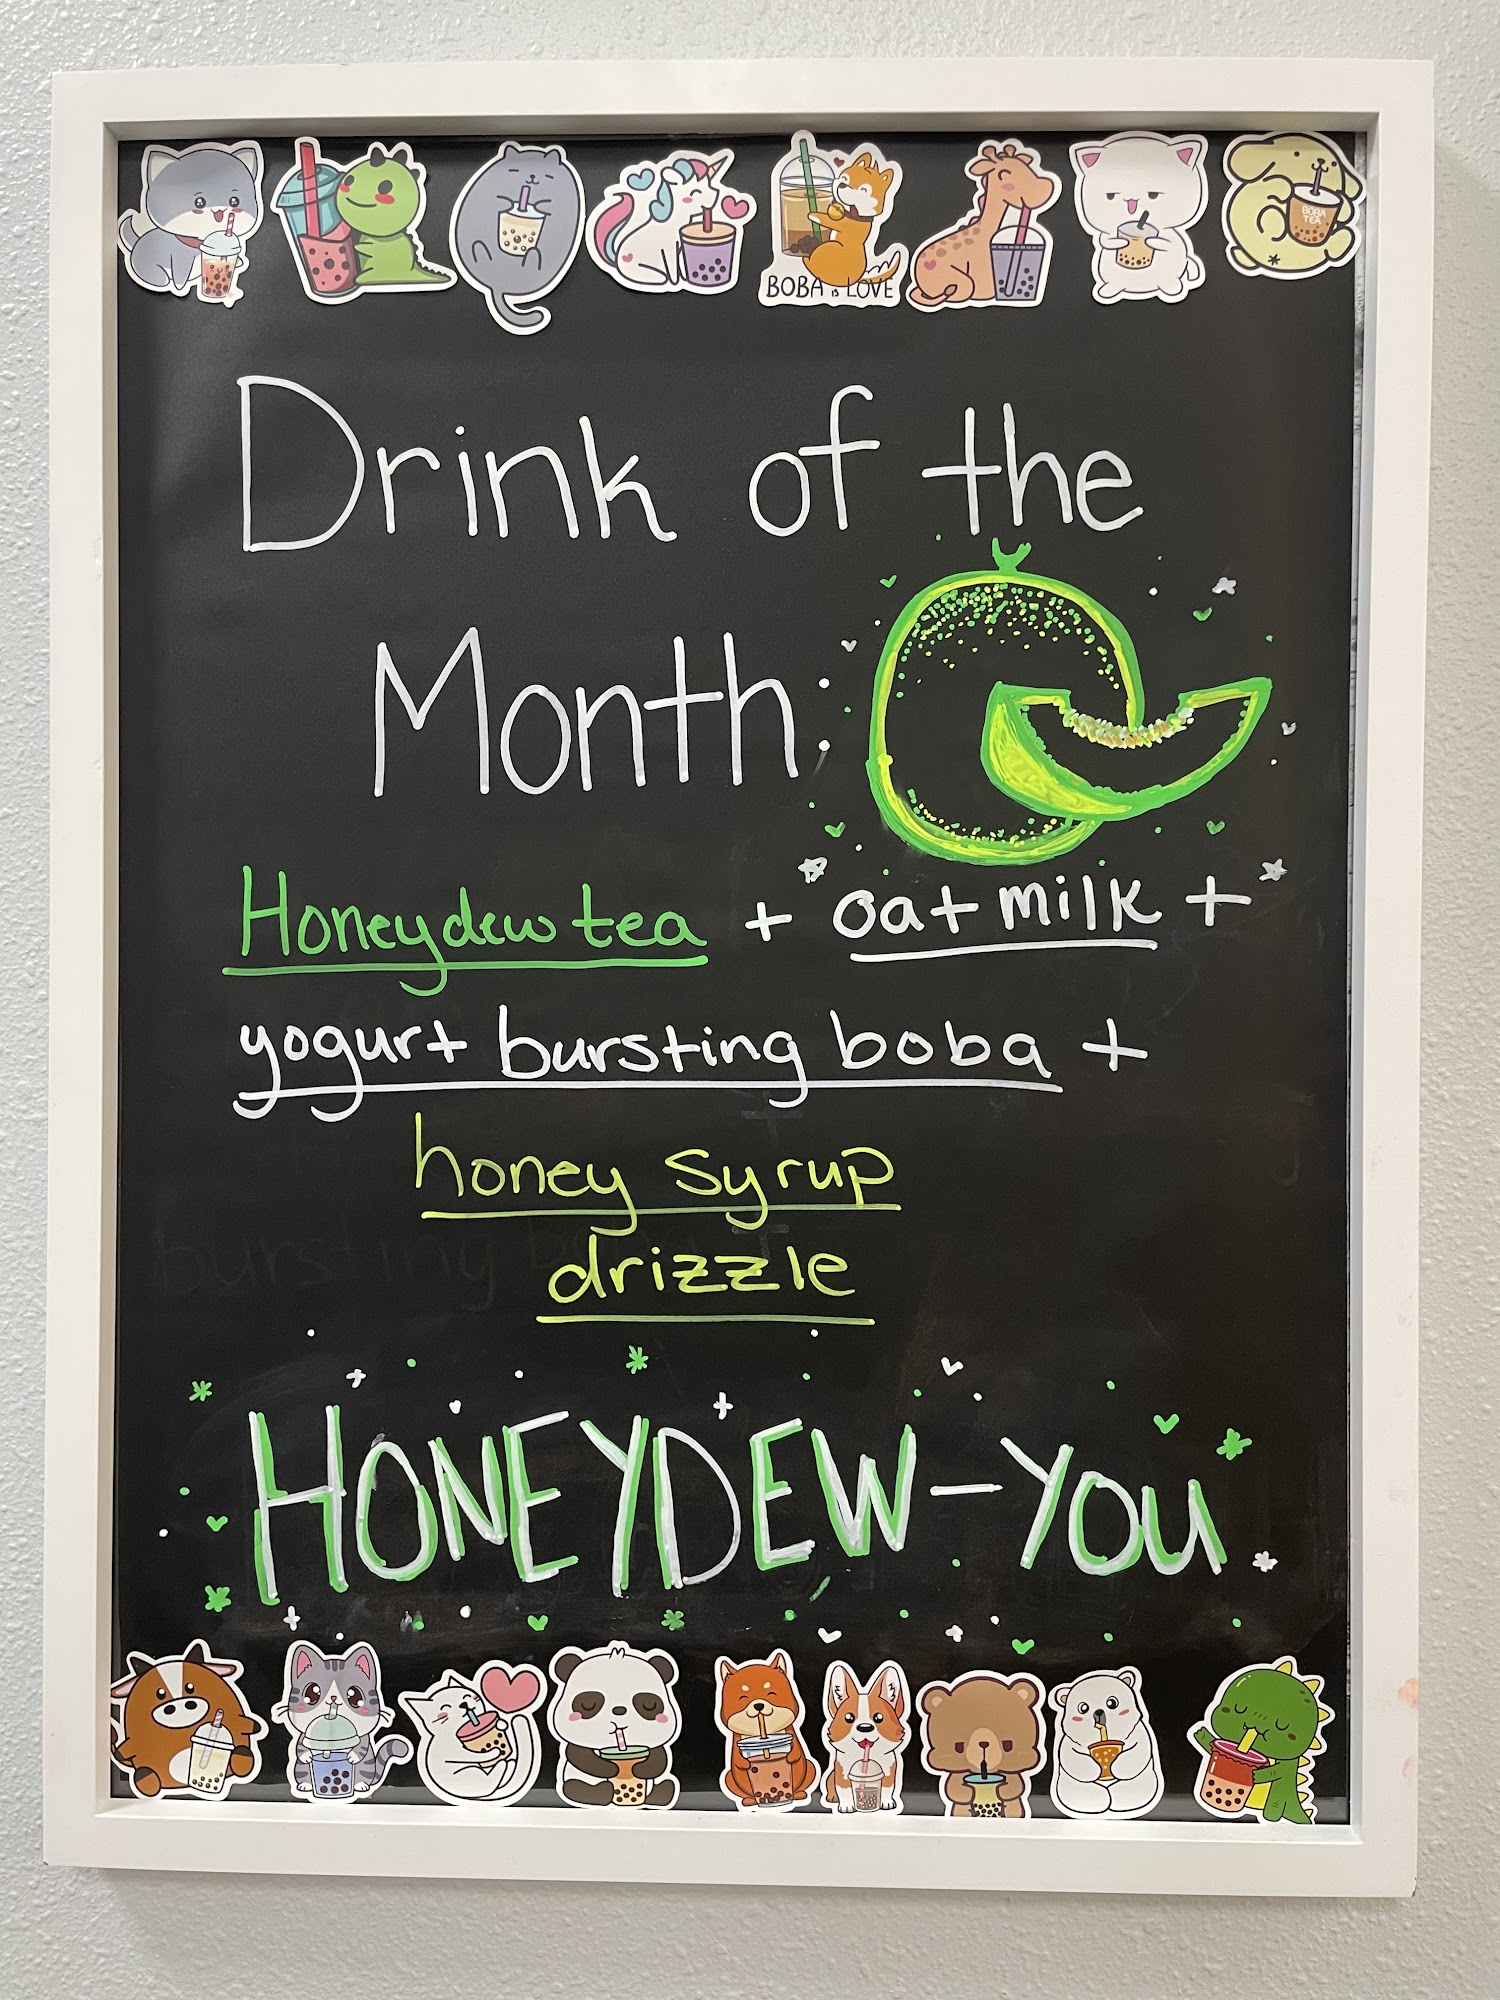 BOBA IS LOVE
BOBA
TEA
Drink of the
Month:
Honeydew tea + oat milk +
yogurt bursting boba +
honey syrup
drizzle
HONEYDEW-YOU